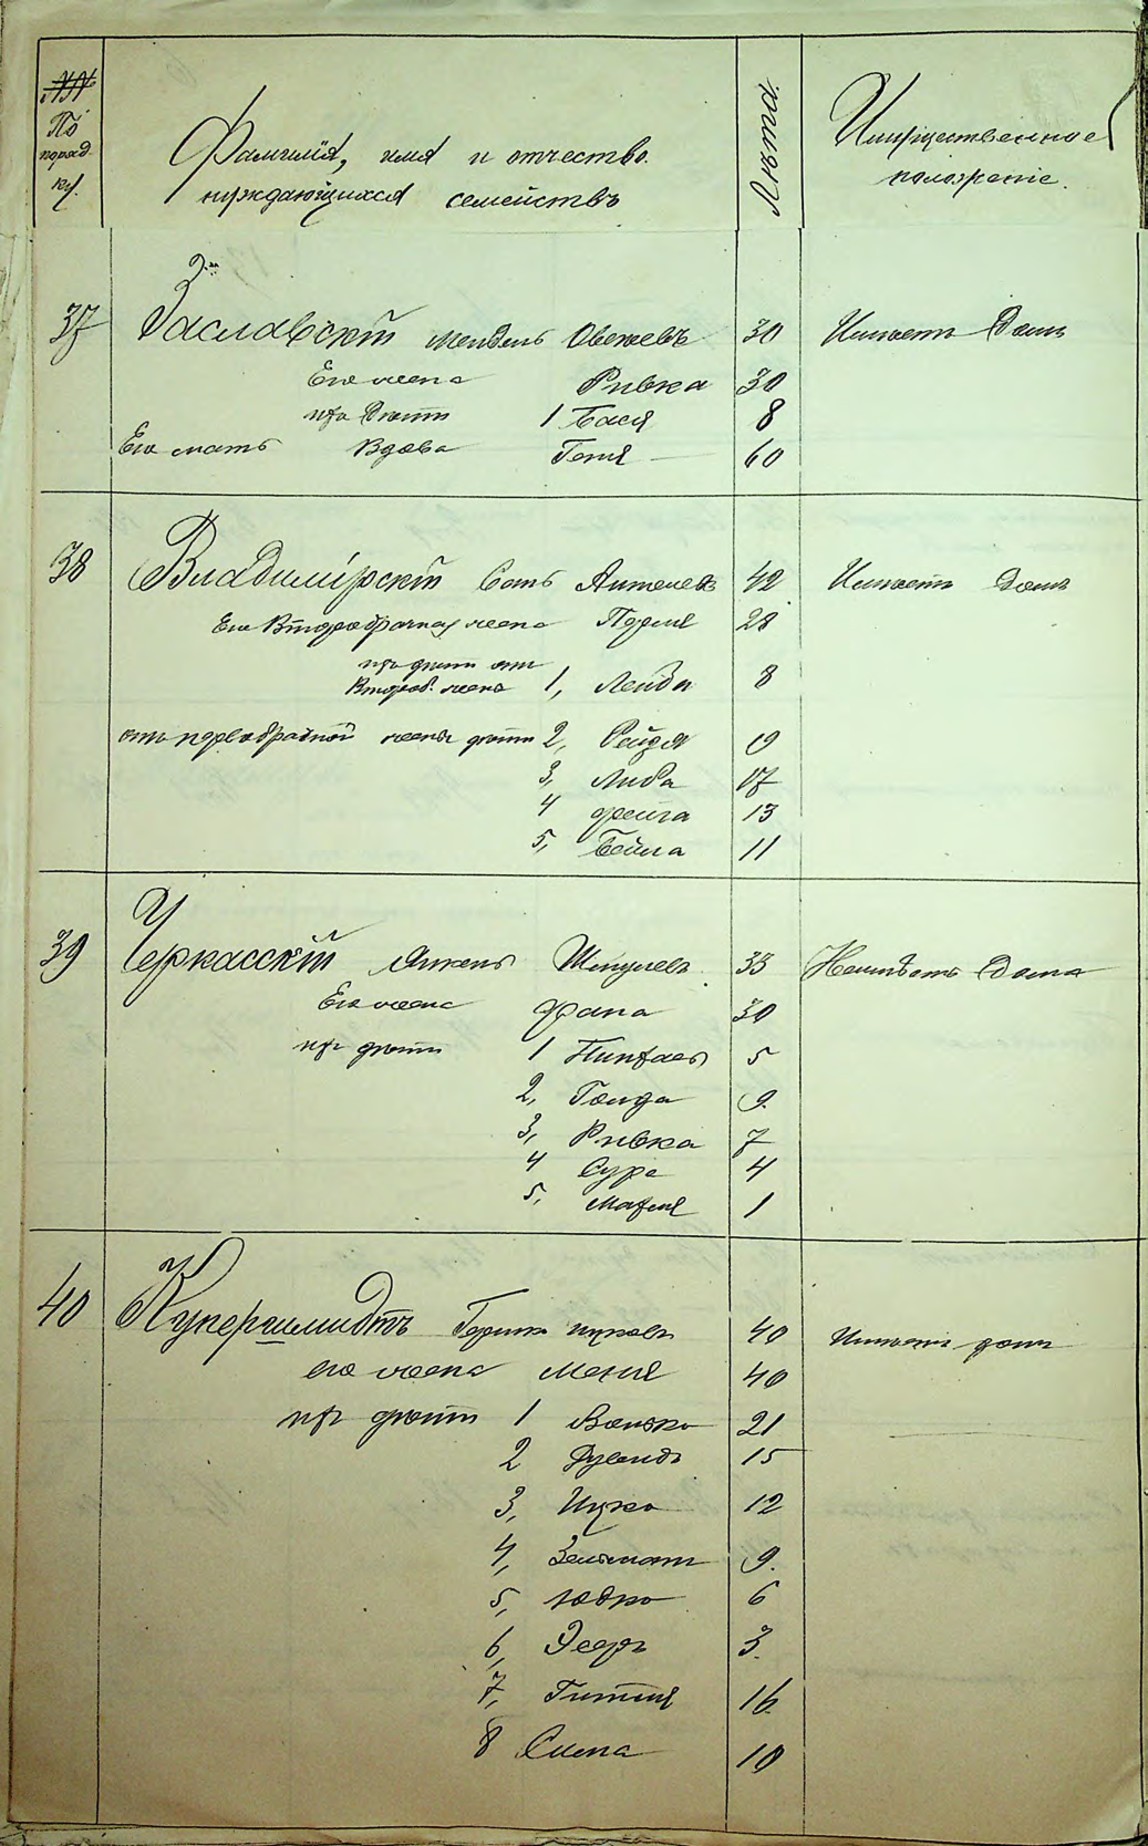 №№
По
поряд-
ку.
Фамилія, имя и отчество
нуждающихся семействъ
Лѣта.
Имущественное
положеніе.
37 Заславскій Мендель Овсеевъ 30 Имѣетъ Домъ
Его жена Ривка 30
ихъ дѣти 1 Бася 8
Его мать Вдова Геня 60
38 Владимірскій 42 Имѣетъ Домъ
Его Второбрачная жена Перля 28
ихъ дѣти отъ
Второб. жена 1, Лейба 8
отъ первобрачной жены дѣти 2, Рейзя 19
3, Либа 17
4 Фейга 13
5, Бейла 11
39 Черкасскій Янкель Шмулевъ 33 Неимѣетъ Дома
Его жена Франа 30
ихъ дѣти 1 Пинхасъ 5
2, Голда 9.
3, Ривка 7
4 Сура 4
5, Махля 1
40 Купершмидтъ Гершко Ицковъ 40 Имѣетъ домъ
его жена Меня 40
ихъ дѣти 1 Волько 21
2 15
3, Ицко 12
4, Зельманъ 9.
5, Юдко 6
6, 3.
7, Гитля 16
8 Сима 10